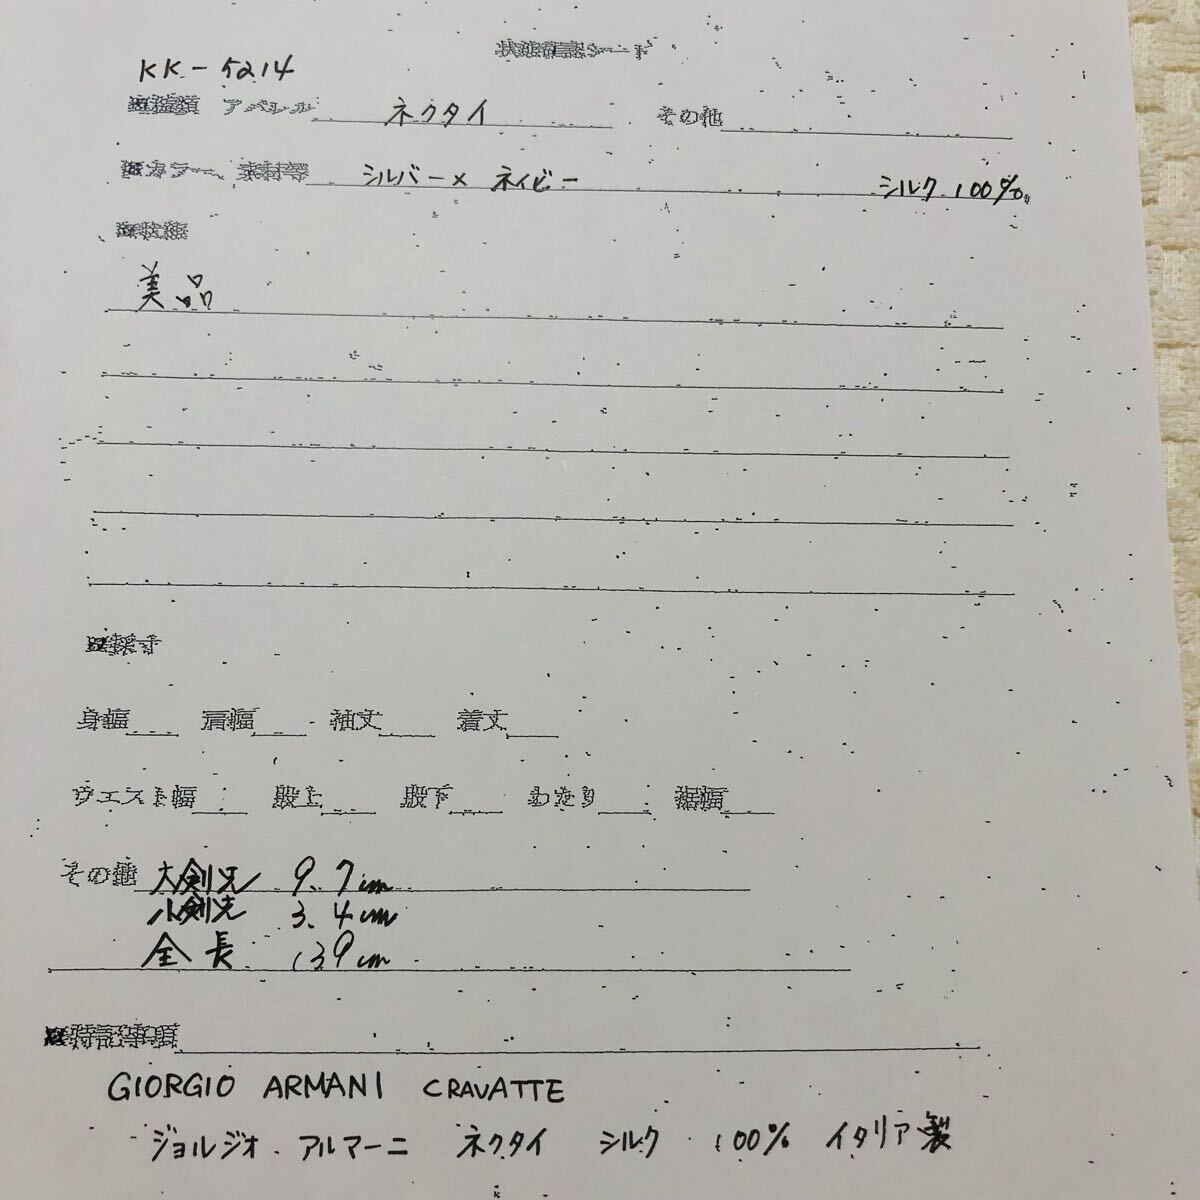 状態確認シート
KK-5214
種類 アパレル ネクタイ その他
カラー、素材等 シルバー× ネイビー シルク 100%
状態
美品
採寸
身幅 肩幅 袖丈 着丈
ウエスト幅 股上 股下 わたり 裾幅
その他 大剣先 9.7cm
小剣先 3.4cm
全長 139cm
特記事項
GIORGIO ARMANI CRAVATTE
ジョルジオ・アルマーニ ネクタイ シルク 100% イタリア製